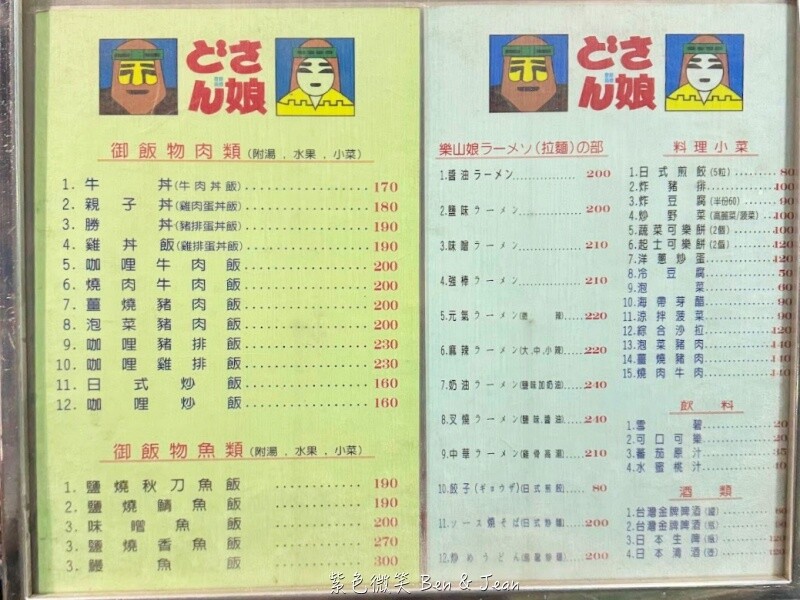 どさん娘
御飯物肉類 (附湯．水果．小菜)
1. 牛丼(牛肉丼飯) 170
2. 親子丼(雞肉蛋丼飯) 180
3. 勝丼(豬排蛋丼飯) 190
4. 雞丼飯(雞排蛋丼飯) 190
5. 咖哩牛肉飯 200
6. 燒肉牛肉飯 200
7. 薑燒豬肉飯 200
8. 泡菜豬肉飯 200
9. 咖哩豬排飯 230
10. 咖哩雞排飯 230
11. 日式炒飯 160
12. 咖哩炒飯 160
御飯物魚類 (附湯．水果．小菜)
1. 鹽燒秋刀魚飯 190
2. 鹽燒鯖魚飯 190
3. 味噌魚飯 200
3. 鹽燒香魚飯 270
3. 鰻魚飯 300
どさん娘
樂山娘ラーメン(拉麵)の部
1.醬油ラーメン 200
2.鹽味ラーメン 200
3.味噌ラーメン 210
4.強棒ラーメン 210
5.元氣ラーメン 220
6.麻辣ラーメン(大.中.小辣) 220
7.奶油ラーメン(鹽味加奶油) 240
8.叉燒ラーメン(鹽味.醬油) 240
9.中華ラーメン(雞骨高湯) 210
10.餃子(ギョウザ)(日式煎餃) 80
11.ソース燒そば(日式炒麵) 200
12.炒めうどん(烏龍炒麵) 200
料理小菜
1.日式煎餃(5粒) 80
2.炸豬排 100
3.炸豆腐(半份60) 90
4.炒野菜(高麗菜/菠菜) 100
5.蔬菜可樂餅(2個) 100
6.起士可樂餅(2個) 120
7.洋蔥炒蛋 120
8.冷豆腐 50
9.泡菜 60
10.海帶芽醋 90
11.涼拌菠菜 90
12.綜合沙拉 120
13.泡菜豬肉 140
14.薑燒豬肉 140
15.燒肉牛肉 140
飲料
1.雪碧 20
2.可口可樂 20
3.蕃茄原汁 35
4.水蜜桃汁 40
酒類
1.台灣金牌啤酒(罐) 60
2.台灣金牌啤酒(瓶)
3.日本生啤(瓶) 120
4.日本清酒(壺) 120
紫色微笑 Ben & Jean